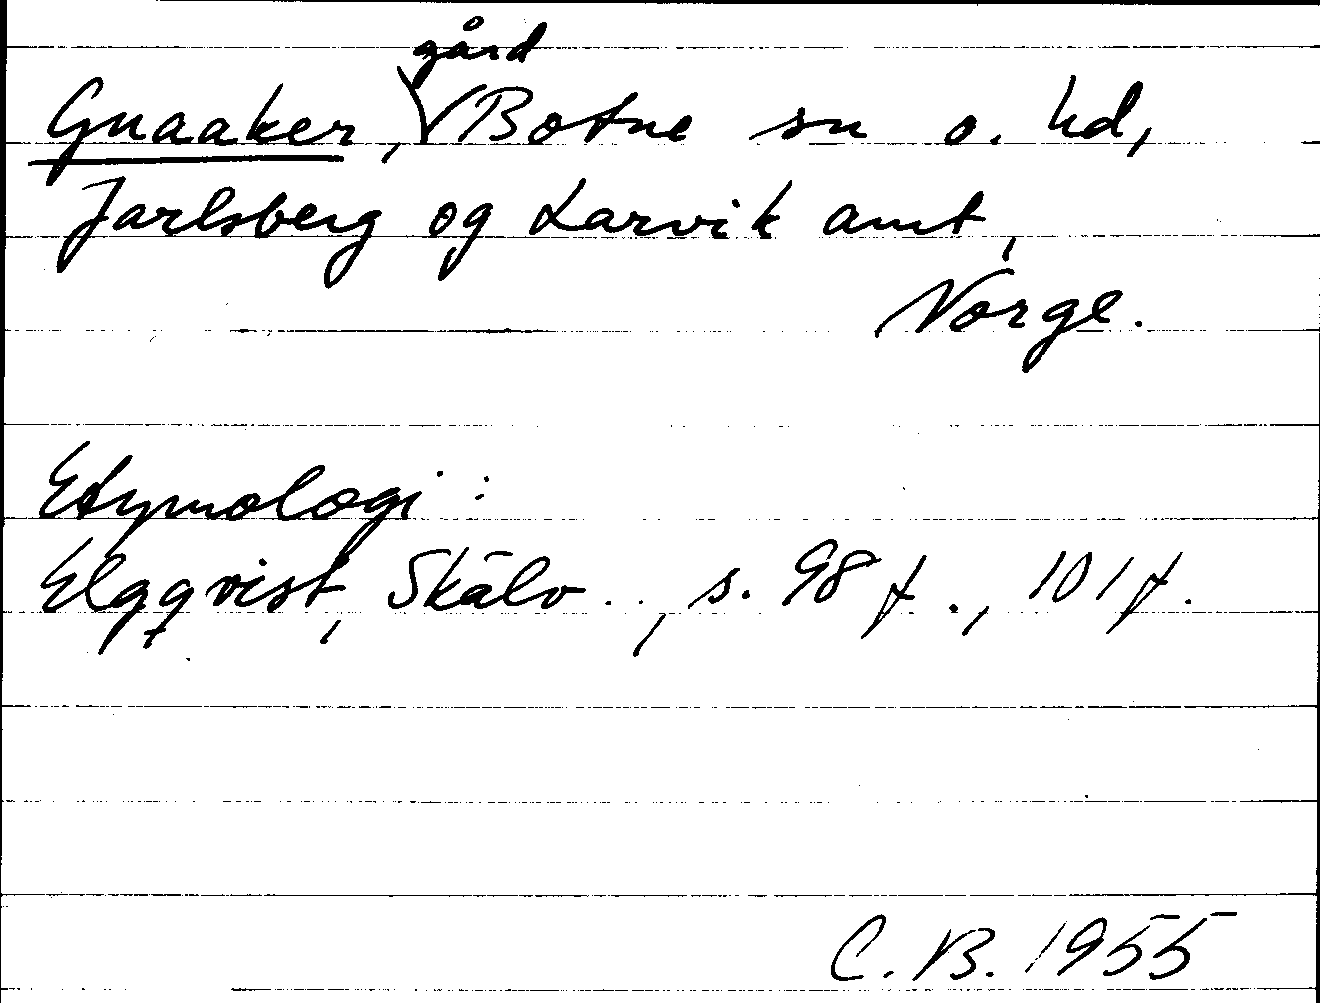 gård
Gnaaker, Botne sn o. hd,
Jarlsberg og Larvik amt,
Norge.
Etymologi:
Elgqvist, Skälv.., s. 98 f., 101 f.
C. B. 1955